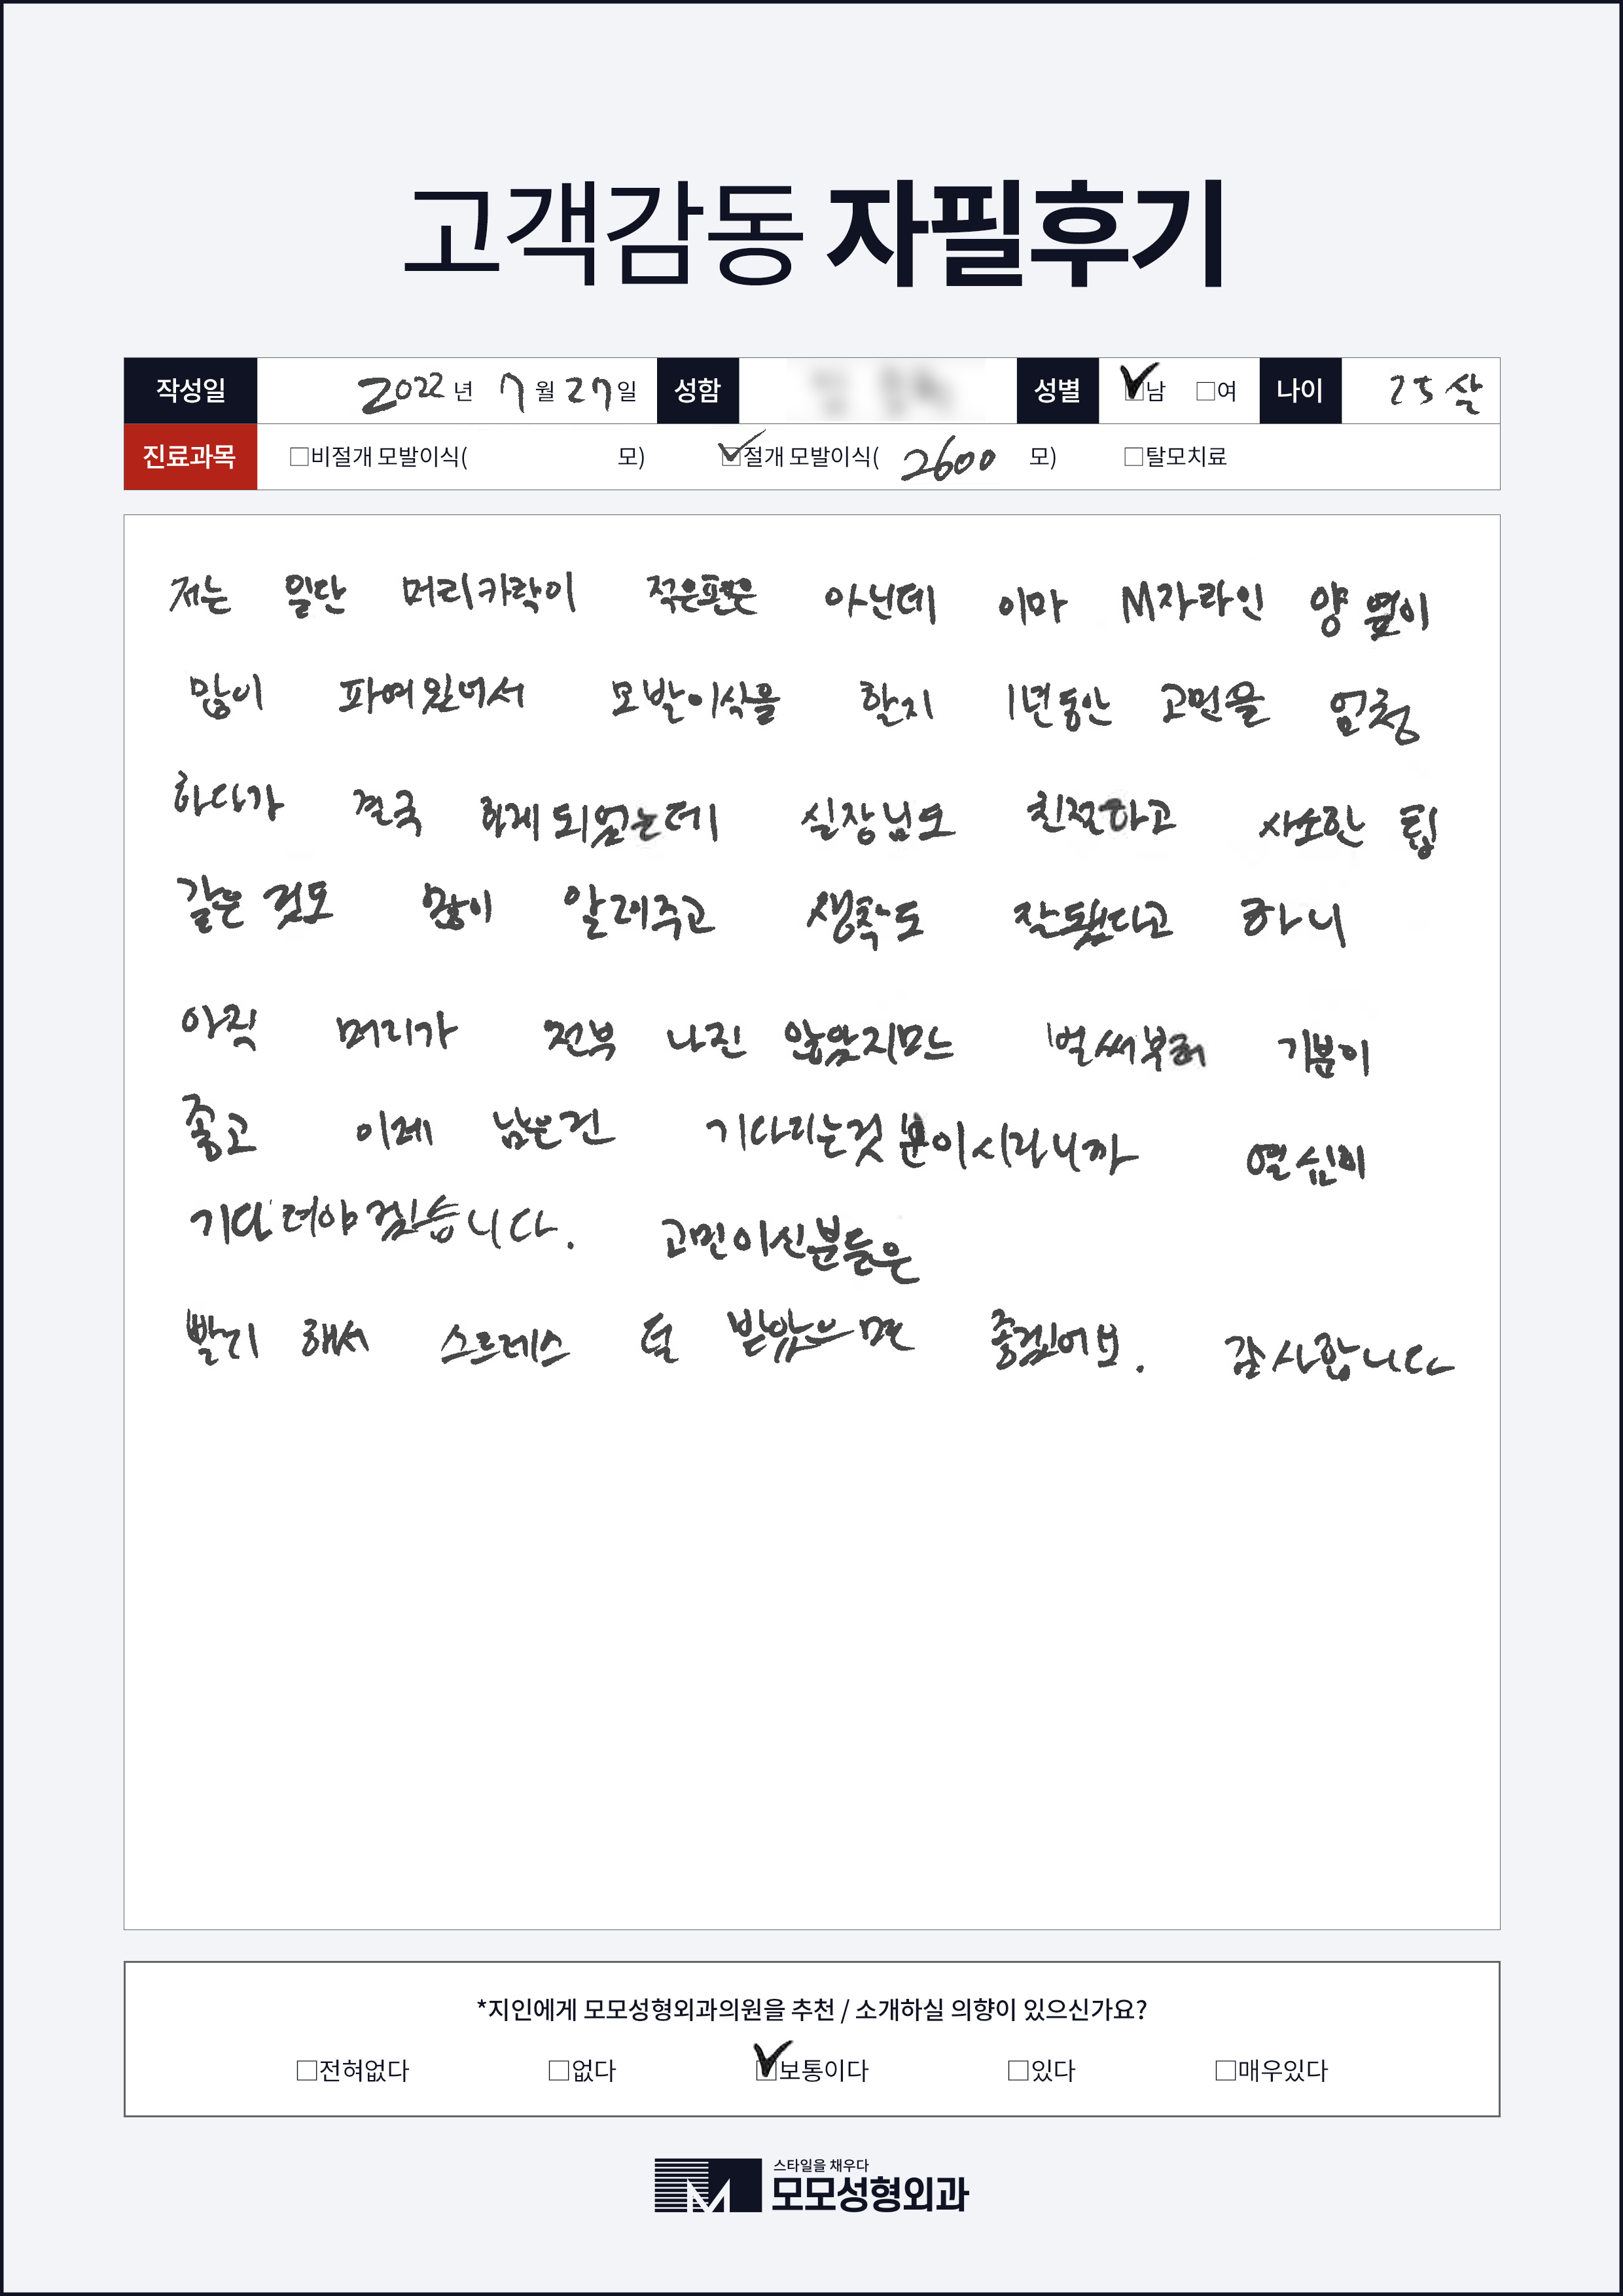 고객감동 자필후기
작성일 2022 년 7 월 27 일 성함 성별 ☑남 □여 나이 25살
진료과목 □비절개 모발이식( 모) ☑절개 모발이식( 2600 모) □탈모치료
저는 일단 머리카락이 적은편은 아닌데 이마 M자라인 양 옆이
많이 파여있어서 모발이식을 할지 1년동안 고민을 엄청
하다가 결국 하게되었는데 실장님도 친절하고 사소한 팁
같은 것도 많이 알려주고 생착도 잘됐다고 하니
아직 머리가 전부 나진 않았지만 벌써부터 기분이
좋고 이제 남은건 기다리는것 뿐이시라니까 열심히
기다려야겠습니다. 고민이신분들은
빨리 해서 스트레스 덜 받았으면 좋겠어요. 감사합니다
*지인에게 모모성형외과의원을 추천 / 소개하실 의향이 있으신가요?
□전혀없다 □없다 ☑보통이다 □있다 □매우있다
스타일을 채우다
모모성형외과